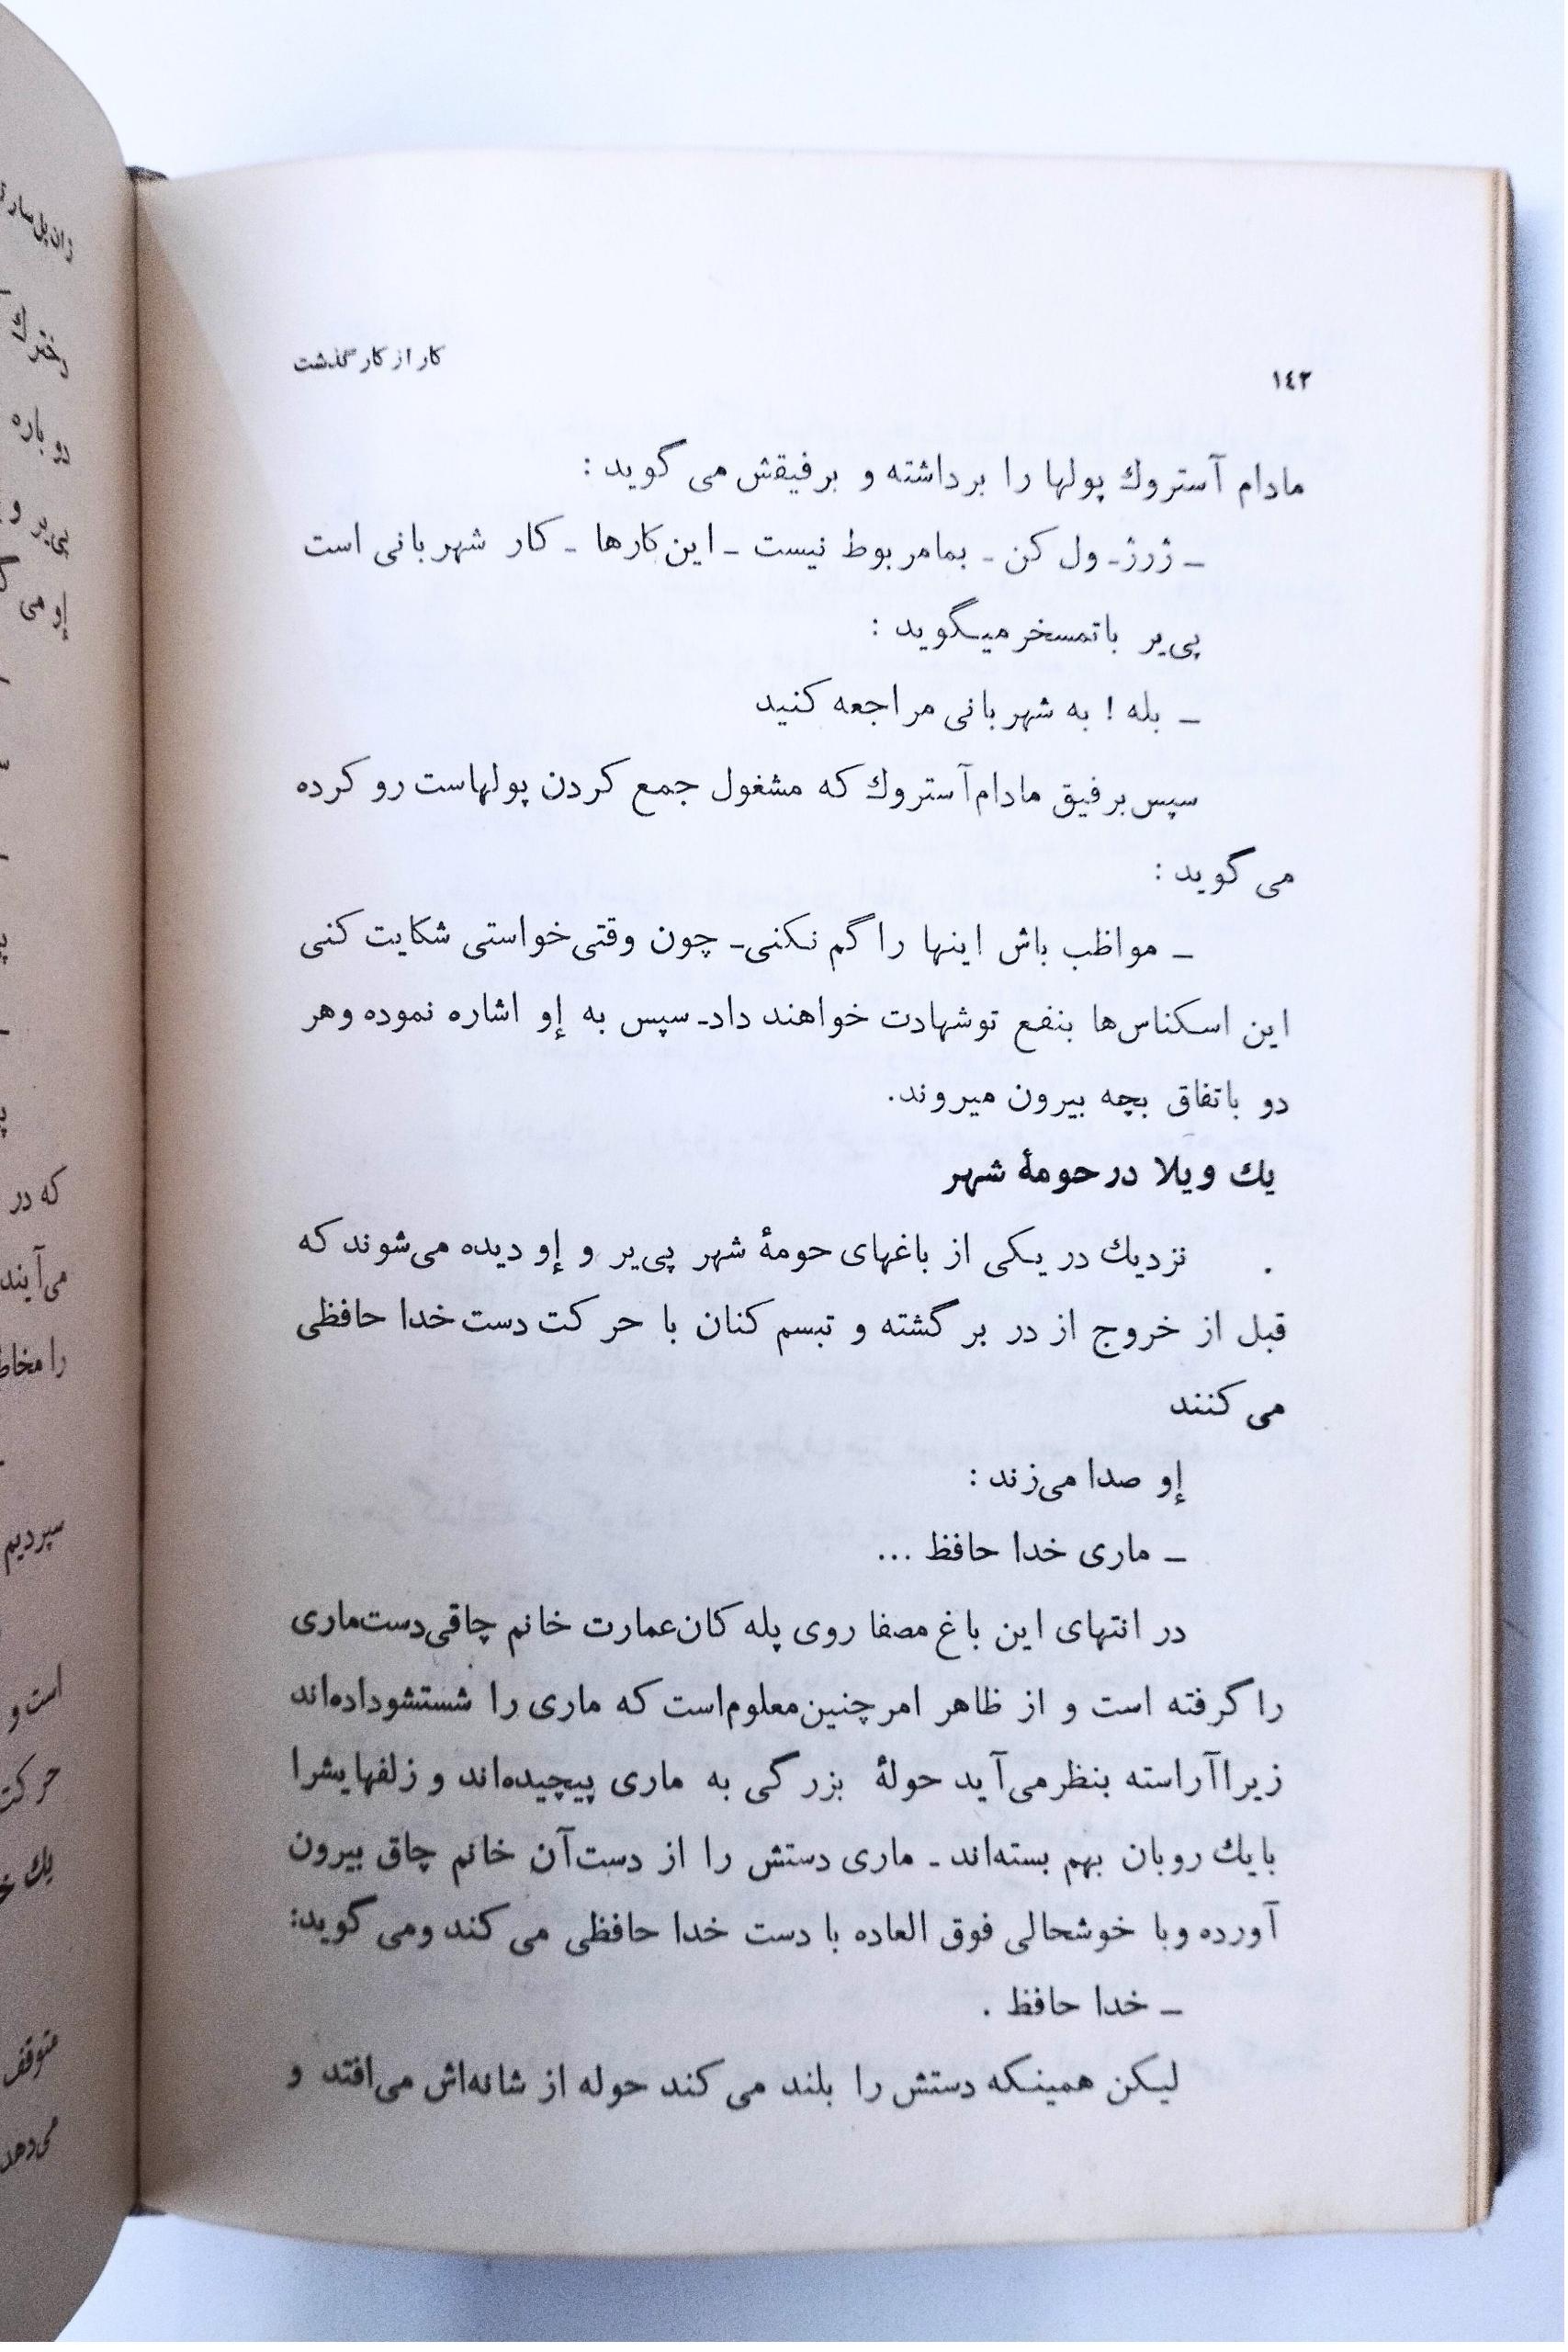 ۱۴۲
کار از کار گذشت
مادام آستروك پولها را برداشته و برفیقش می گوید :
ـ ژرژـ ول کن ـ بمامربوط نیست ـ این‌کارها ـ کار شهربانی است
پی‌یر باتمسخر میـگوید :
ـ بله ! به شهربانی مراجعه کنید
سپس‌برفیق مادام‌آستروك که مشغول جمع کردن پولهاست رو کرده
می گوید :
ـ مواظب باش اینها را گم نـکنی‌ـ چون وقتی‌خواستی شکایت کنی
این اسـکناس‌ها بنفـع توشهادت خواهند دادـ سپس به إو اشاره نموده وهر
دو باتفاق بچه بیرون میروند.
یك ویلا درحومهٔ شهر
. نزدیك در یـکی از باغهای حومهٔ شهر پی‌یر و إو دیده می‌شوند که
قبل از خروج از در برگشته و تبسم کنان با حرکت دست خدا حافظی
می کنند
إو صدا می‌زند :
ـ ماری خدا حافظ ...
در انتهای این باغ مصفا روی پله کان‌عمارت خانم چاقی‌دست‌ماری
را گرفته است و از ظاهر امرچنین‌معلوم‌است که ماری را شستشوداده‌اند
زیراآراسته بنظرمی‌آید حولهٔ بزرگی به ماری پیچیده‌اند و زلفهایشرا
بایك روبان بهم بسته‌اند ـ ماری دستش را از دست‌آن خانم چاق بیرون
آورده وبا خوشحالی فوق العاده با دست خدا حافظی می کند ومی گوید:
ـ خدا حافظ .
لیـکن همینـکه دستش را بلند می کند حوله از شانه‌اش می‌افتد و
دخترك
دو باره
پی‌یر و
إو می
که در
می‌آیند
سپردیم
است و
حرکت
یك
متوقف
می‌دهد